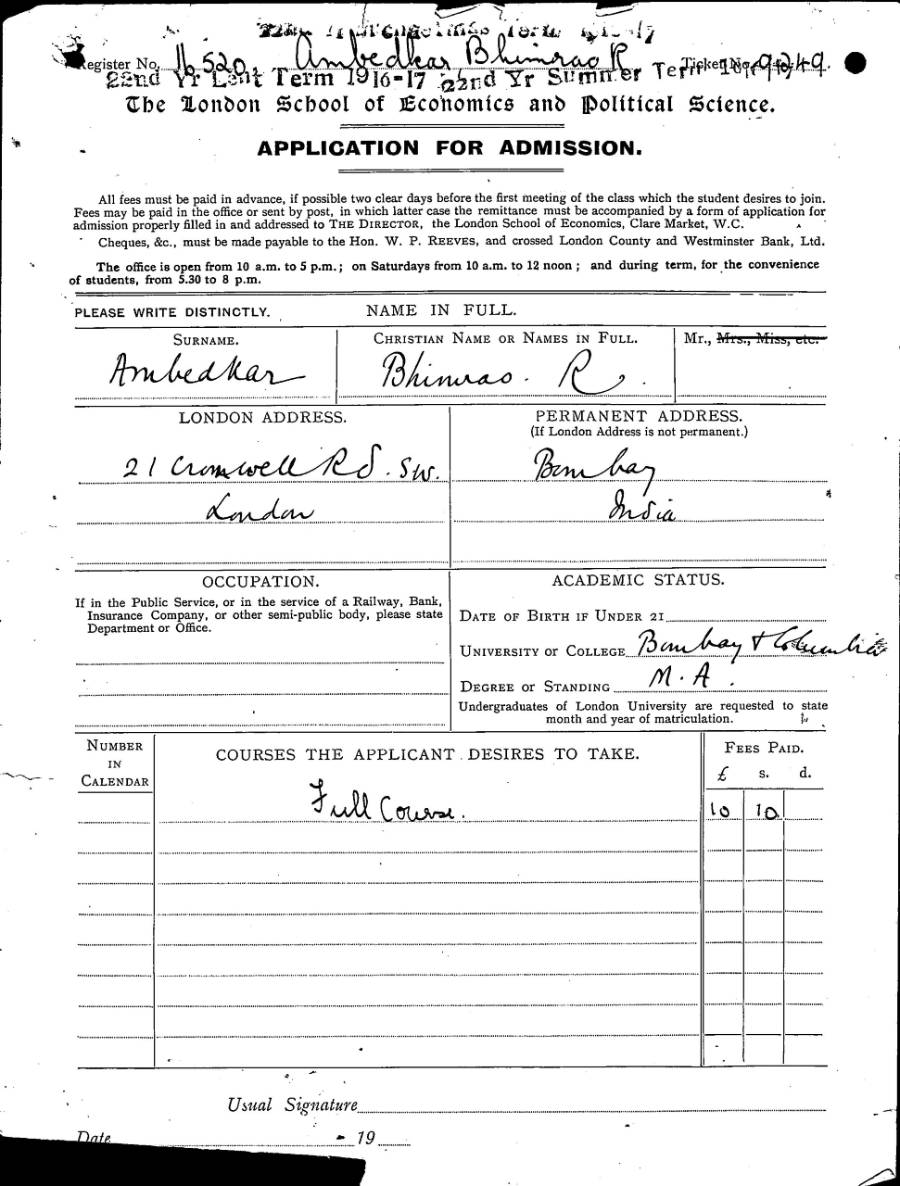 22nd Yr Michaelmas Term 1916-17
Register No. 16520 Ambedkar Bhimrao R Ticket No.
22nd Yr Lent Term 1916-17 22nd Yr Summer Term
The London School of Economics and Political Science.
APPLICATION FOR ADMISSION.
All fees must be paid in advance, if possible two clear days before the first meeting of the class which the student desires to join.
Fees may be paid in the office or sent by post, in which latter case the remittance must be accompanied by a form of application for
admission properly filled in and addressed to THE DIRECTOR, the London School of Economics, Clare Market, W.C.
Cheques, &c., must be made payable to the Hon. W. P. REEVES, and crossed London County and Westminster Bank, Ltd.
The office is open from 10 a.m. to 5 p.m.; on Saturdays from 10 a.m. to 12 noon; and during term, for the convenience
of students, from 5.30 to 8 p.m.
PLEASE WRITE DISTINCTLY. NAME IN FULL.
SURNAME. CHRISTIAN NAME OR NAMES IN FULL. Mr., Mrs., Miss, etc.
Ambedkar Bhimrao. R.
LONDON ADDRESS. PERMANENT ADDRESS.
(If London Address is not permanent.)
21 Cromwell Rd. SW. Bombay
London India
OCCUPATION. ACADEMIC STATUS.
If in the Public Service, or in the service of a Railway, Bank,
Insurance Company, or other semi-public body, please state
Department or Office.
DATE OF BIRTH IF UNDER 21
UNIVERSITY OR COLLEGE Bombay & Columbia
DEGREE OR STANDING M.A.
Undergraduates of London University are requested to state
month and year of matriculation.
NUMBER IN CALENDAR COURSES THE APPLICANT DESIRES TO TAKE. FEES PAID.
£ s. d.
Full Course. 10 10
Usual Signature
Date 19